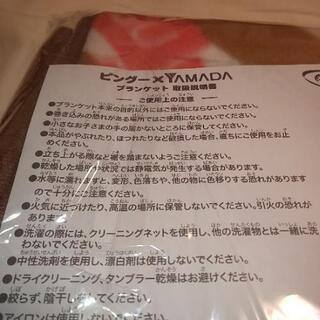 ピンダー×YAMADA
ブランケット 取扱説明書
ご使用上の注意
●ブランケット本来の目的以外にはご使用にならないでください。
●巻き込みの恐れがある場所ではご使用にならないでください。
●小さなお子さまの手の届かないところに保管してください。
●本品がやぶれたり、ほつれたりなど破損した場合、直ちにご使用をお止
めください。
●立ち上がる際など裾を踏まないようご注意ください。
●乾燥した場所や状況では静電気が発生する場合があります。
●水等に濡れますと、変形、色落ちや、他の物に色移りする恐れがあります
ので十分にご注意ください。
●火気に近づけたり、高温の場所に保管しないでください。引火の恐れが
あります。
●洗濯の際には、クリーニングネットを使用し、他の洗濯物とは一緒に洗
わないでください。
●中性洗剤を使用し、漂白剤は使用しないでください。
●ドライクリーニング、タンブラー乾燥はお避けください。
●絞らず、陰干しをしてください。
●アイロンは使用しないでください